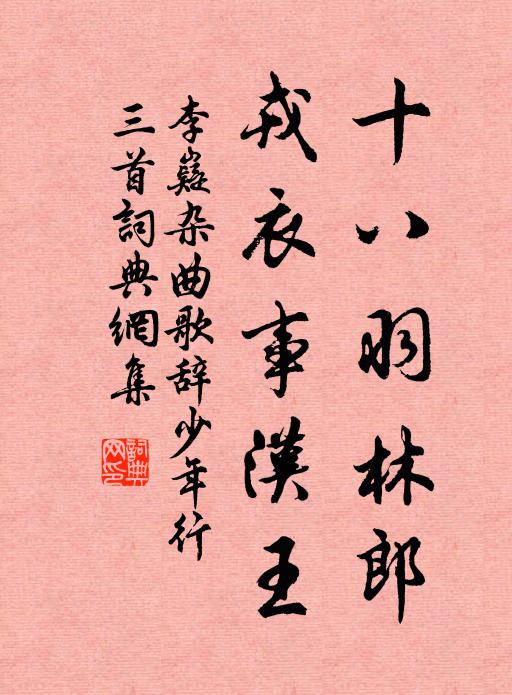 十八羽林郎
戎衣事漢王
李嶷杂曲歌辞少年行
三首詞典網集
詞典网印